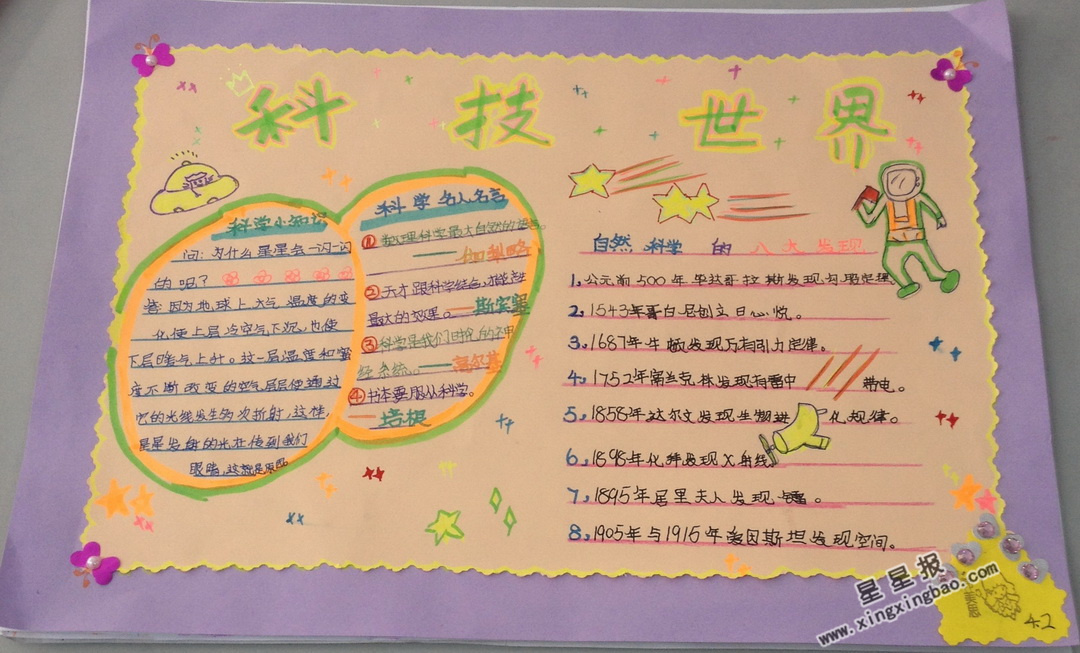 科技世界
科学小知识
问:为什么星星会一闪一闪
的呢?
答:因为地球上大气温度的变
化使上层冷空气下沉,也使
下层暖气上升。这一层温度和密
度不断改变的空气层层使通过
它的光线发生多次折射,这样,
星星发射的光在传到我们
眼睛,这就是原因
科学名人名言
①数理科学是大自然的语言。
——伽利略
②天才跟科学结合,才能有
最大的效果。——斯宾塞
③科学是我们时代的神
经系统。——高尔基
④书本要服从科学。
——培根
自然科学的八大发现
1.公元前500年毕达哥拉斯发现勾股定理
2.1543年哥白尼创立日心说。
3.1687年牛顿发现万有引力定律。
4.1752年富兰克林发现有雷中带电。
5.1858年达尔文发现生物进化规律。
6.1898年化琴发现X射线
7.1895年居里夫人发现。
8.1905年与1915年爱因斯坦发现空间。
星星报
www.xingxingbao.com
4.2